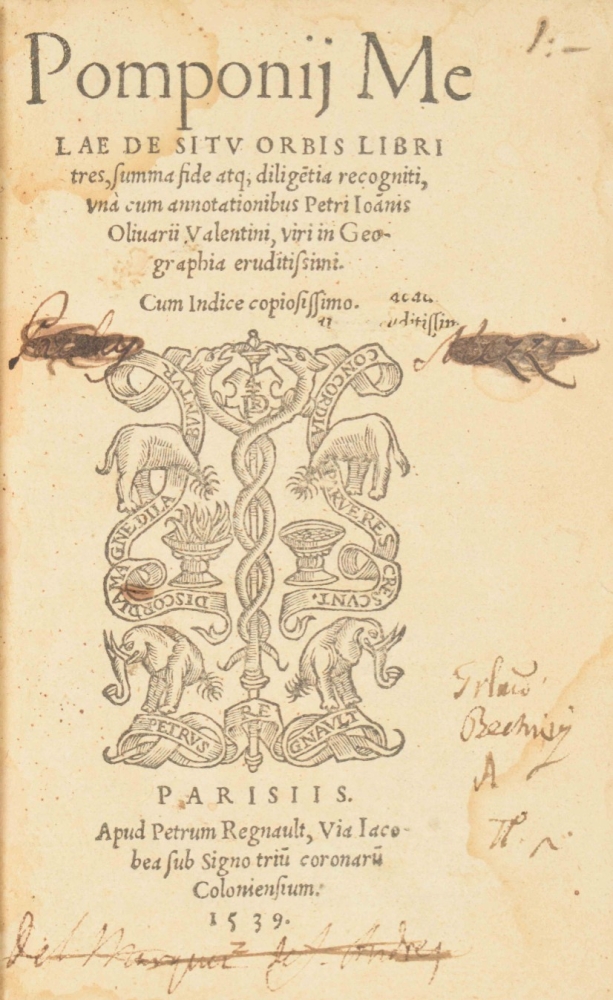 Pomponij Me
LAE DE SITV ORBIS LIBRI
tres, summa fide atq; diligētia recogniti,
vnà cum annotationibus Petri Ioānis
Oliuarii Valentini, viri in Geo-
graphia eruditissimi.
Cum Indice copiosissimo.
CONCORDIA
PARVE RES
CRESCVNT.
DISCORDIA
MAGNE DILA
BVNTVR
PETRVS
RE
GNAVLT
PARISIIS.
Apud Petrum Regnault, Via Iaco-
bea sub Signo triū coronarū
Coloniensium.
1539.
Del Marques de S. Andrea